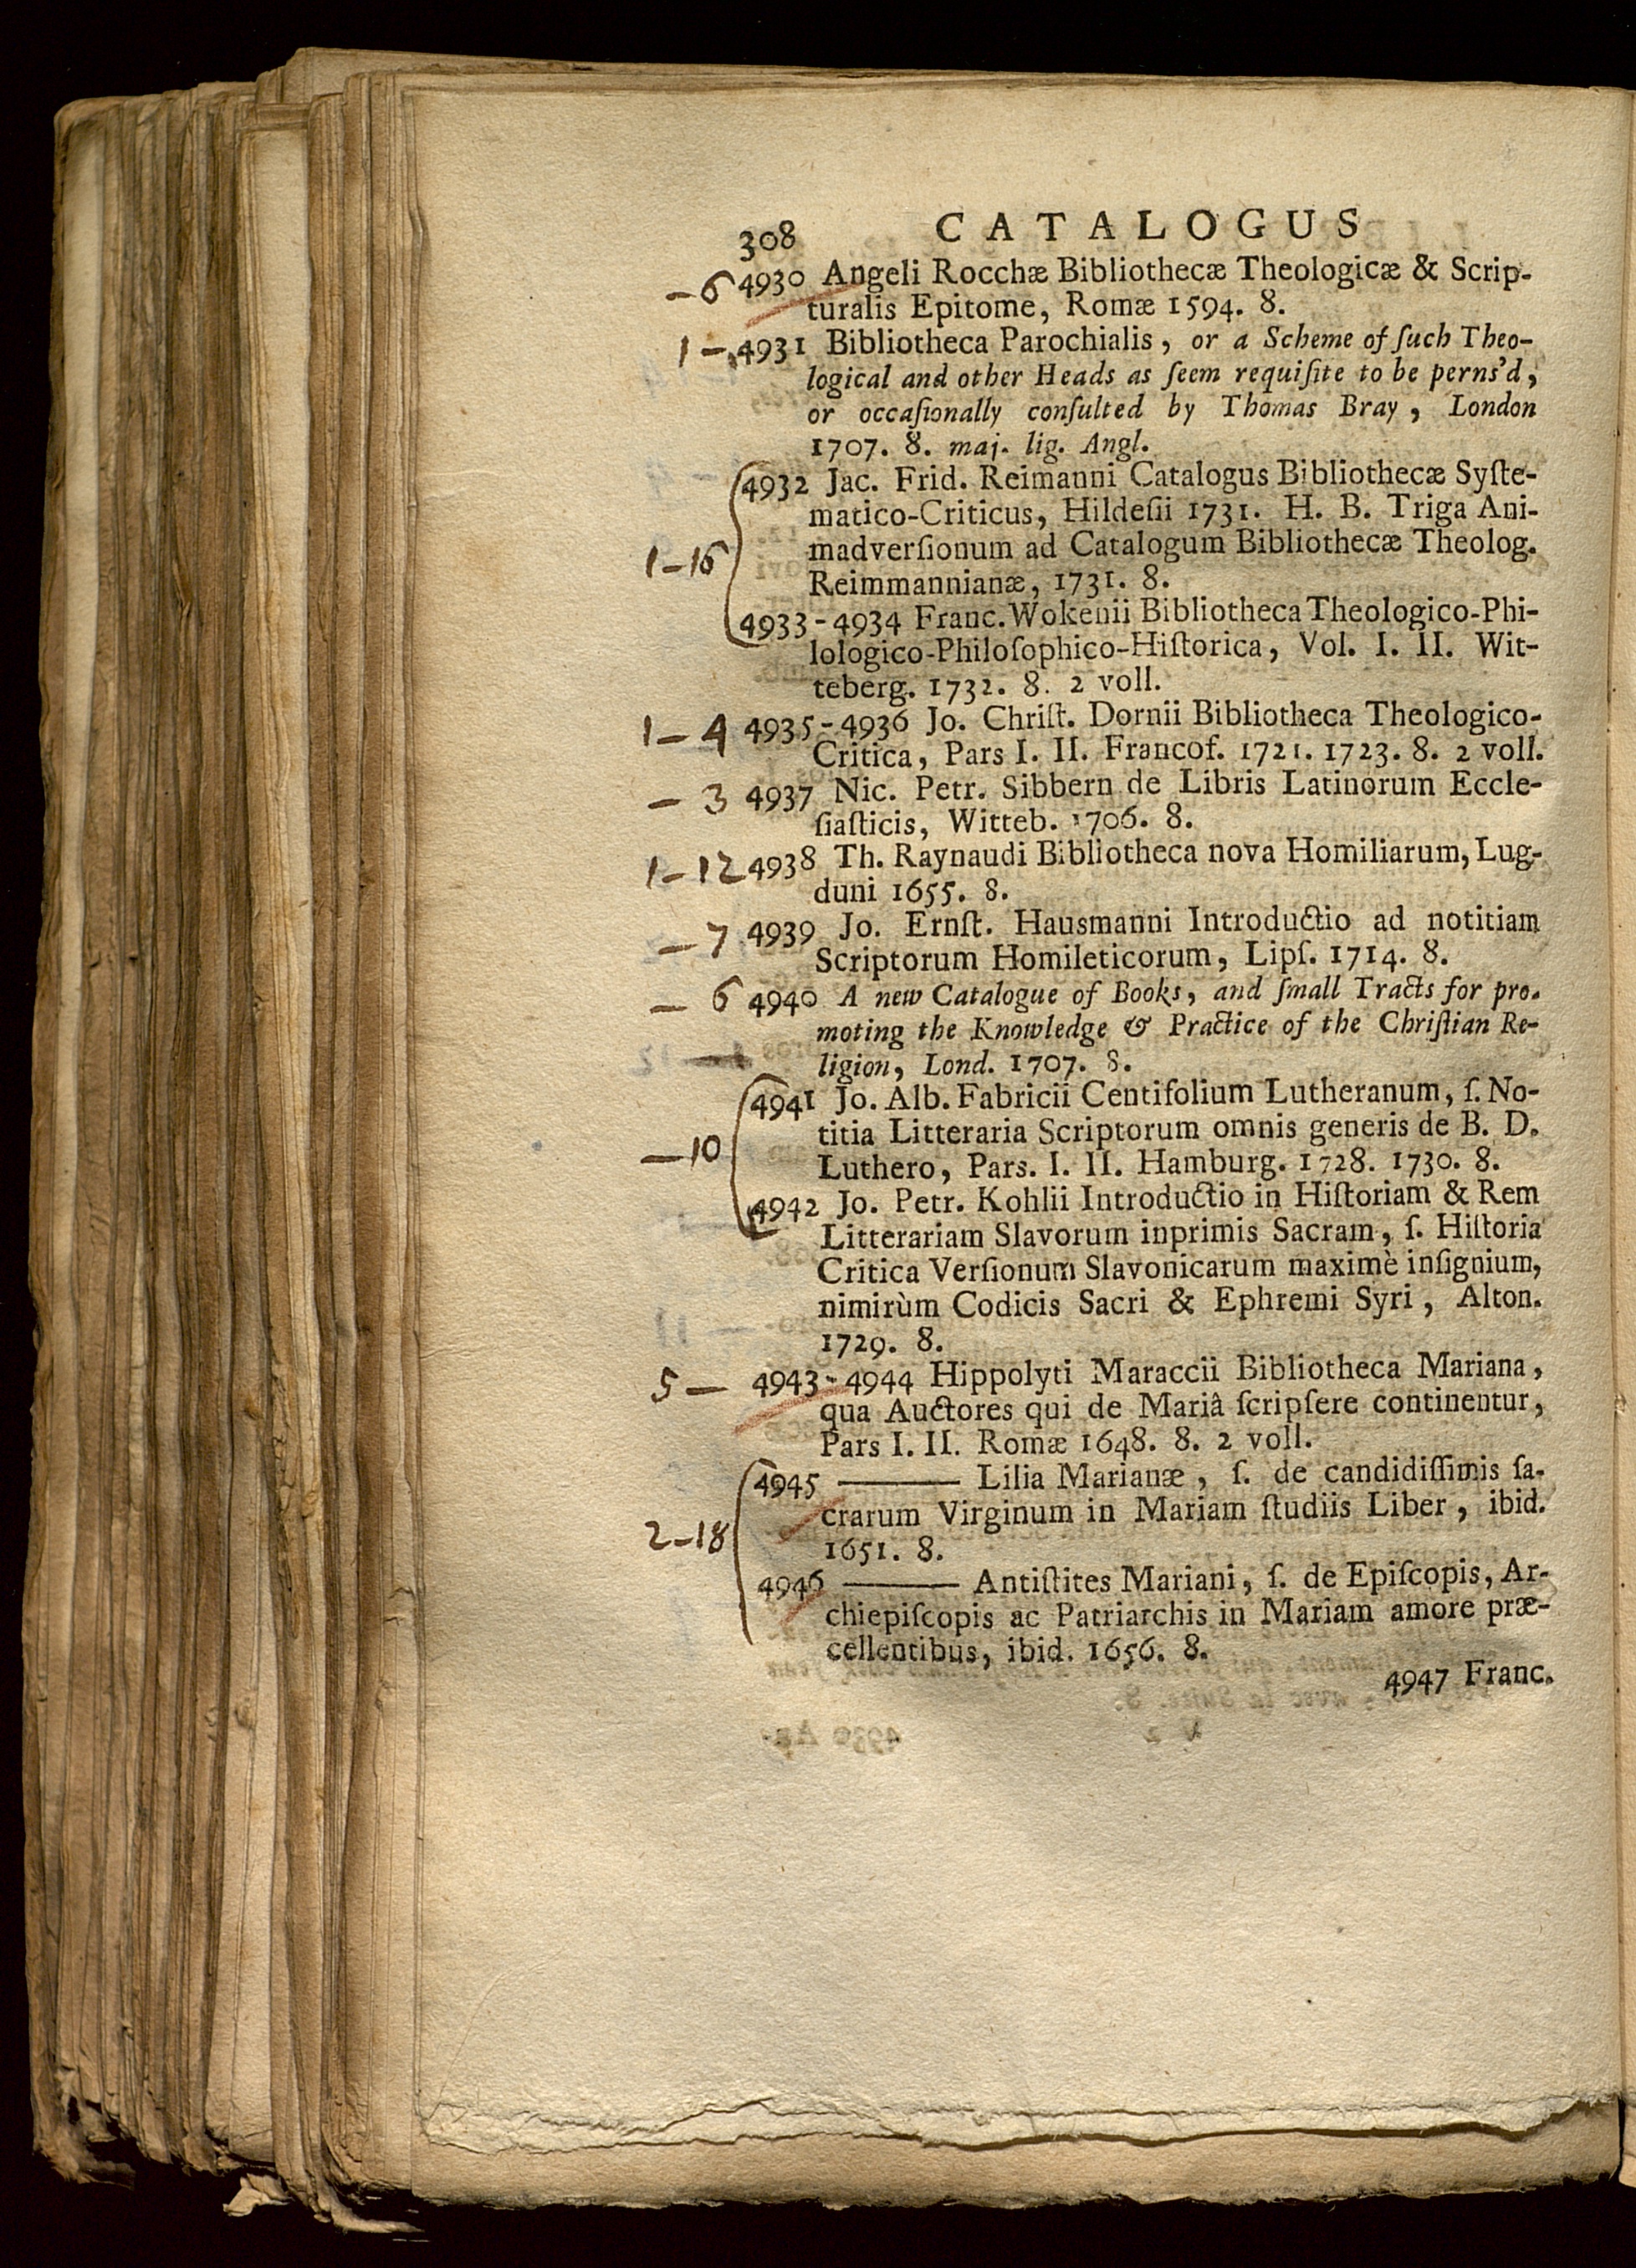 308 CATALOGUS
-6 4930 Angeli Rocchæ Bibliothecæ Theologicæ & Scrip-
turalis Epitome, Romæ 1594. 8.
1- 4931 Bibliotheca Parochialis, or a Scheme of ſuch Theo-
logical and other Heads as ſeem requiſite to be perns'd,
or occaſionally conſulted by Thomas Bray, London
1707. 8. maj. lig. Angl.
4932 Jac. Frid. Reimanni Catalogus Bibliothecæ Syſte-
matico-Criticus, Hildeſii 1731. H. B. Triga Ani-
1-16 madverſionum ad Catalogum Bibliothecæ Theolog.
Reimmannianæ, 1731. 8.
4933-4934 Franc. Wokenii Bibliotheca Theologico-Phi-
lologico-Philoſophico-Hiſtorica, Vol. I. II. Wit-
teberg. 1732. 8. 2 voll.
1-4 4935-4936 Jo. Chriſt. Dornii Bibliotheca Theologico-
Critica, Pars I. II. Francof. 1721. 1723. 8. 2 voll.
-3 4937 Nic. Petr. Sibbern de Libris Latinorum Eccle-
ſiaſticis, Witteb. 1706. 8.
1-12 4938 Th. Raynaudi Bibliotheca nova Homiliarum, Lug-
duni 1655. 8.
-7 4939 Jo. Ernſt. Hausmanni Introductio ad notitiam
Scriptorum Homileticorum, Lipſ. 1714. 8.
-6 4940 A new Catalogue of Books, and ſmall Tracts for pro-
moting the Knowledge & Practice of the Chriſtian Re-
ligion, Lond. 1707. 8.
4941 Jo. Alb. Fabricii Centifolium Lutheranum, ſ. No-
titia Litteraria Scriptorum omnis generis de B. D.
-10 Luthero, Pars. I. II. Hamburg. 1728. 1730. 8.
4942 Jo. Petr. Kohlii Introductio in Hiſtoriam & Rem
Litterariam Slavorum inprimis Sacram, ſ. Hiſtoria
Critica Verſionum Slavonicarum maximè inſignium,
nimirùm Codicis Sacri & Ephremi Syri, Alton.
1729. 8.
5- 4943-4944 Hippolyti Maraccii Bibliotheca Mariana,
qua Auctores qui de Mariâ ſcripſere continentur,
Pars I. II. Romæ 1648. 8. 2 voll.
4945 ——— Lilia Marianæ, ſ. de candidiſſimis ſa-
crarum Virginum in Mariam ſtudiis Liber, ibid.
2-18 1651. 8.
4946 ——— Antiſtites Mariani, ſ. de Epiſcopis, Ar-
chiepiſcopis ac Patriarchis in Mariam amore præ-
cellentibus, ibid. 1656. 8.
4947 Franc.